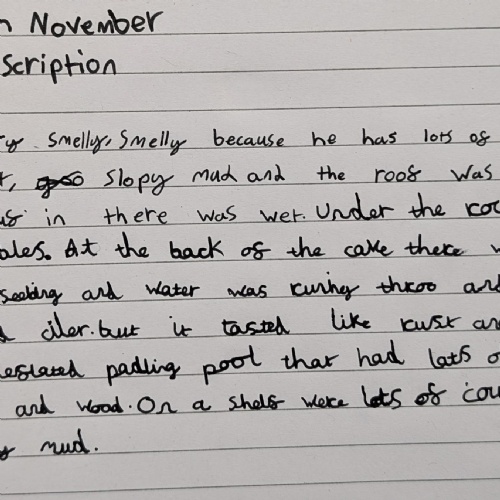 November
scription
smelly, smelly because he has lots of
slopy mud and the roof was
in there was wet. Under the
ales. At the back of the cave there
and water was runing throo
but it tasted like rust
padling pool that had lots
and wood. On a shelf were lots of
mud.